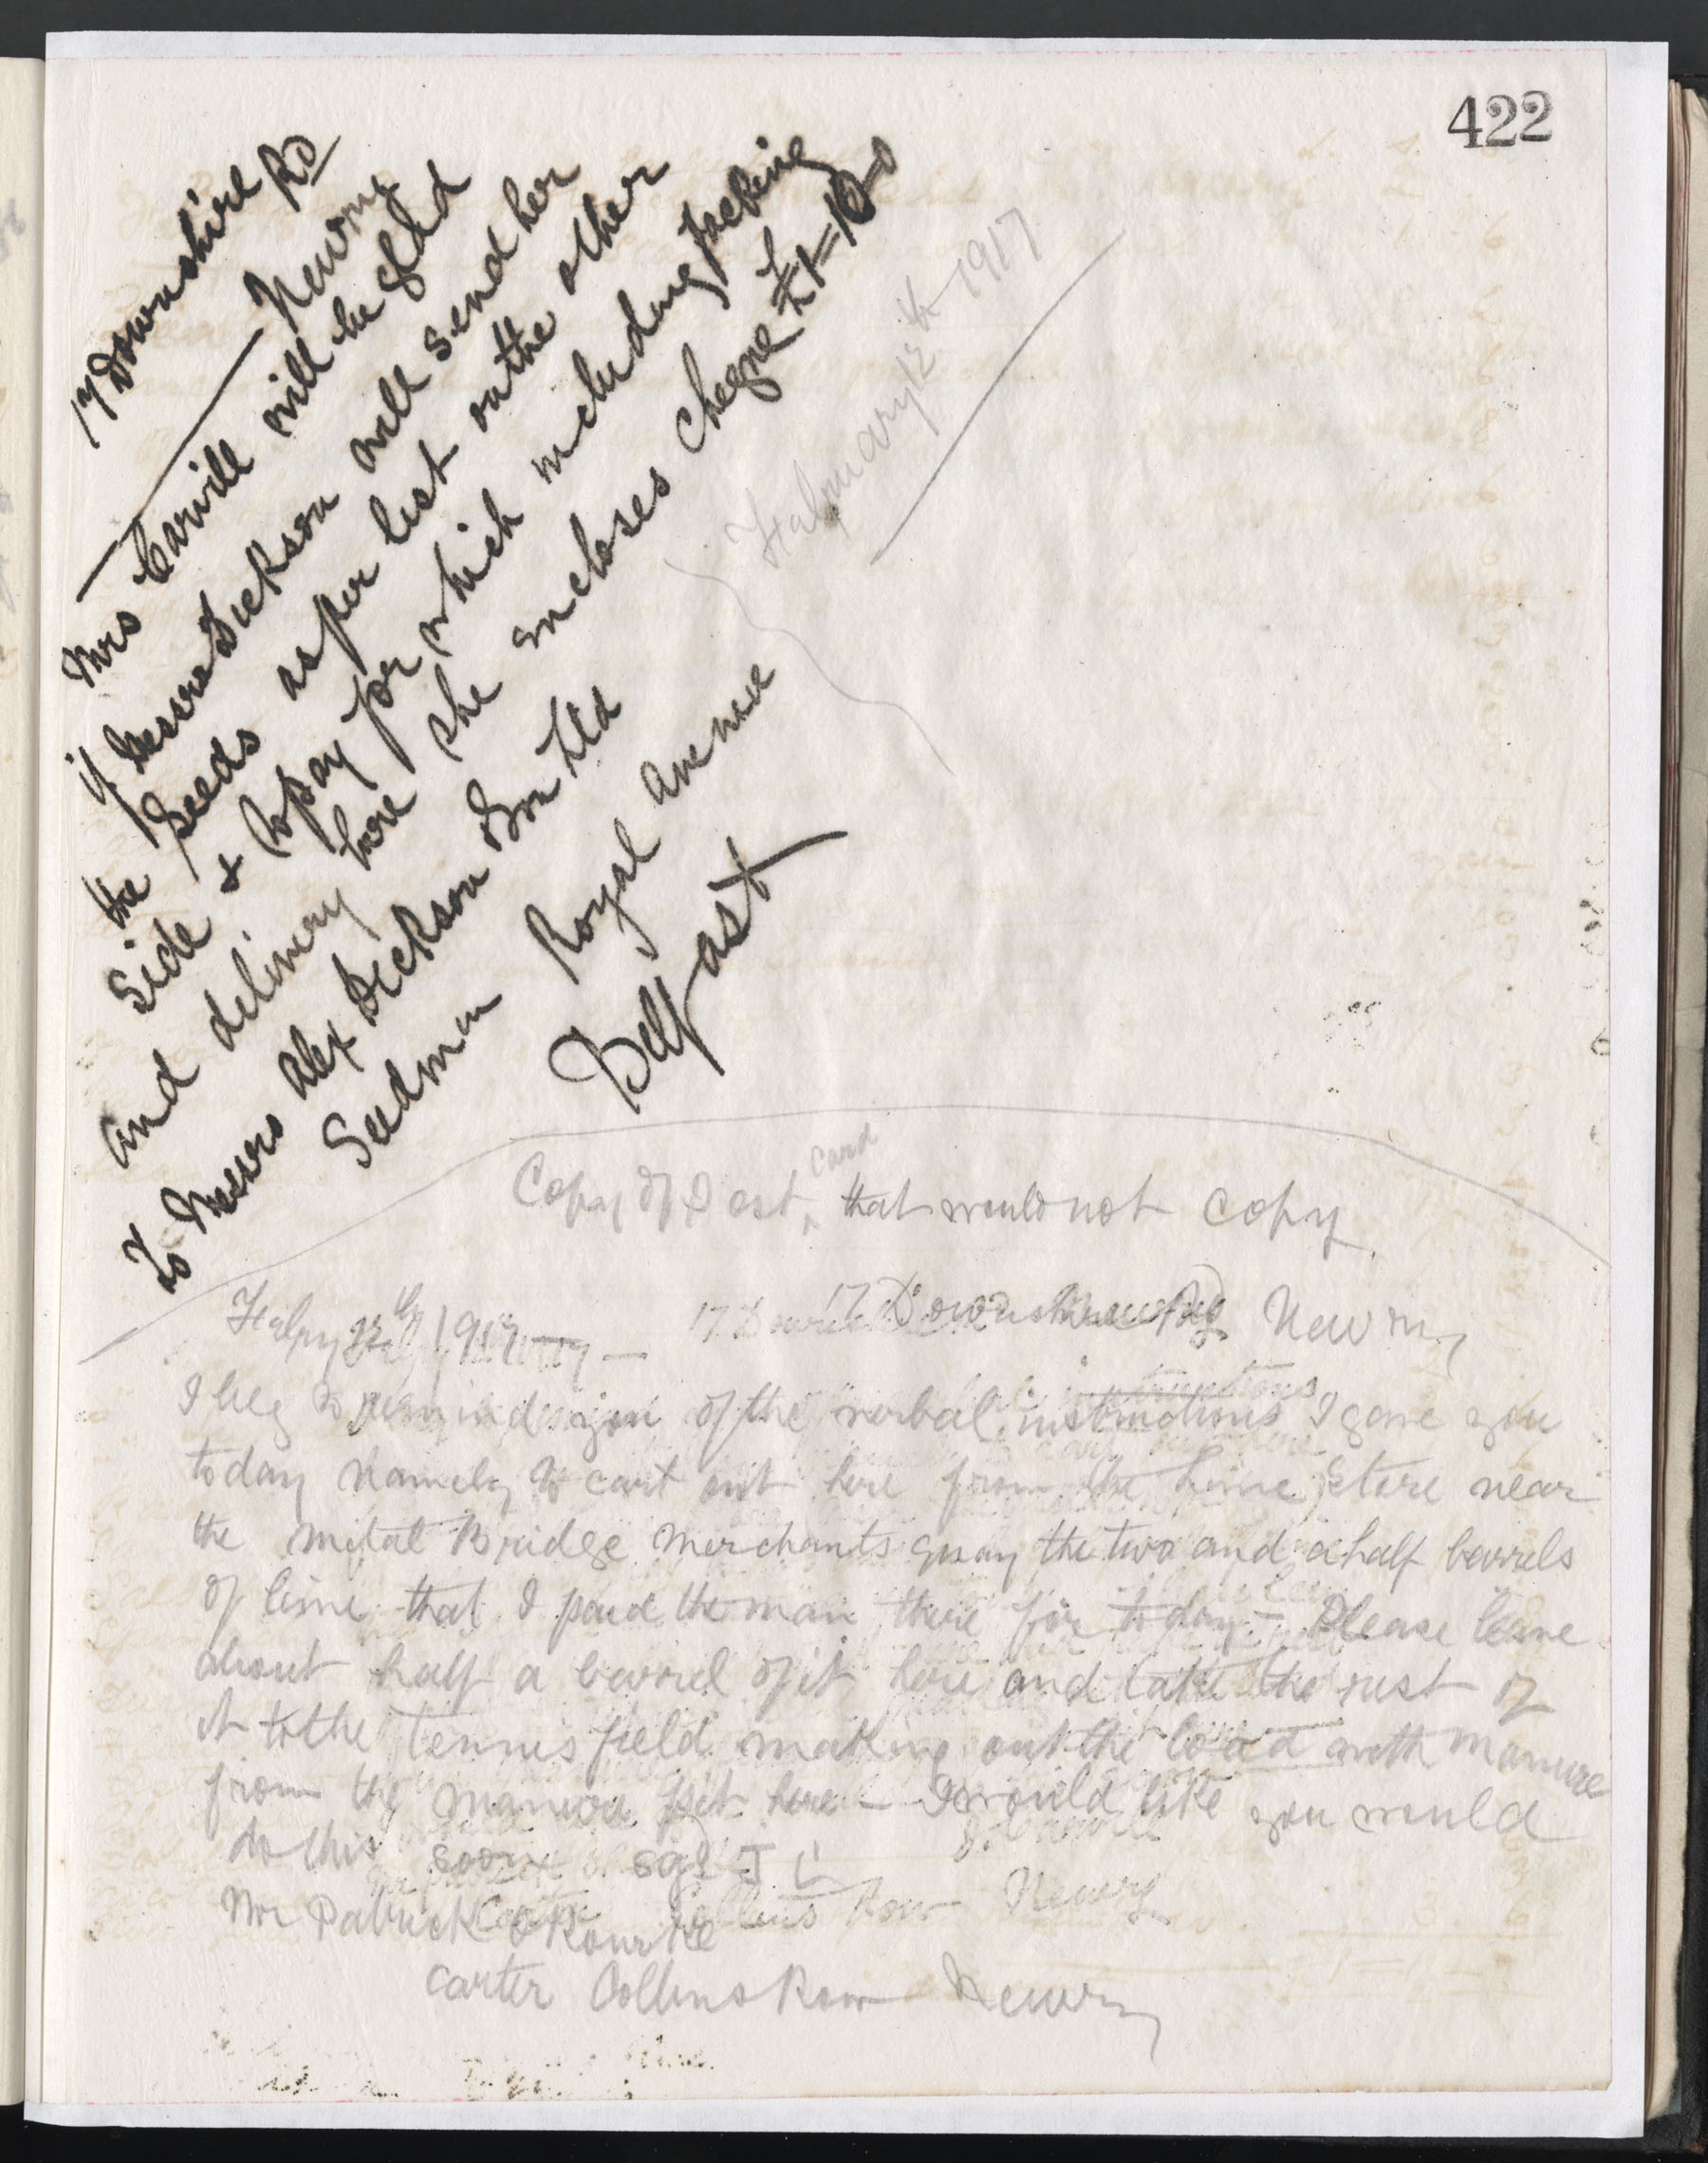 422
17 Downshire Rd
Newry
Mrs Carvill will be glad
if Messrs Dickson will send her
the Seeds as per list on the other
Side & to pay for which including packing
and delivery here she encloses cheque £1=10=0
To Messrs Alex Dickson & Son Ltd
Seedmen Royal Avenue
Belfast
Febuary 12th 1917
Copy of Post card that would not copy
Feby 1917 17 Downshire Rd Newry
I beg to remind you of the verbal instructions I gave you
today namely to cart out here from the lime Store near
the Metal Bridge Merchants Quay the two and a half barrels
of lime that I paid the man there for today - Please leave
about half a barrel of it here and take the rest of
it to the tennis field making out the load with manure
from the manure pit here - I would like you would
do this soon sgd J C
Mr Patrick O Rourke
carter Collins Row Newry